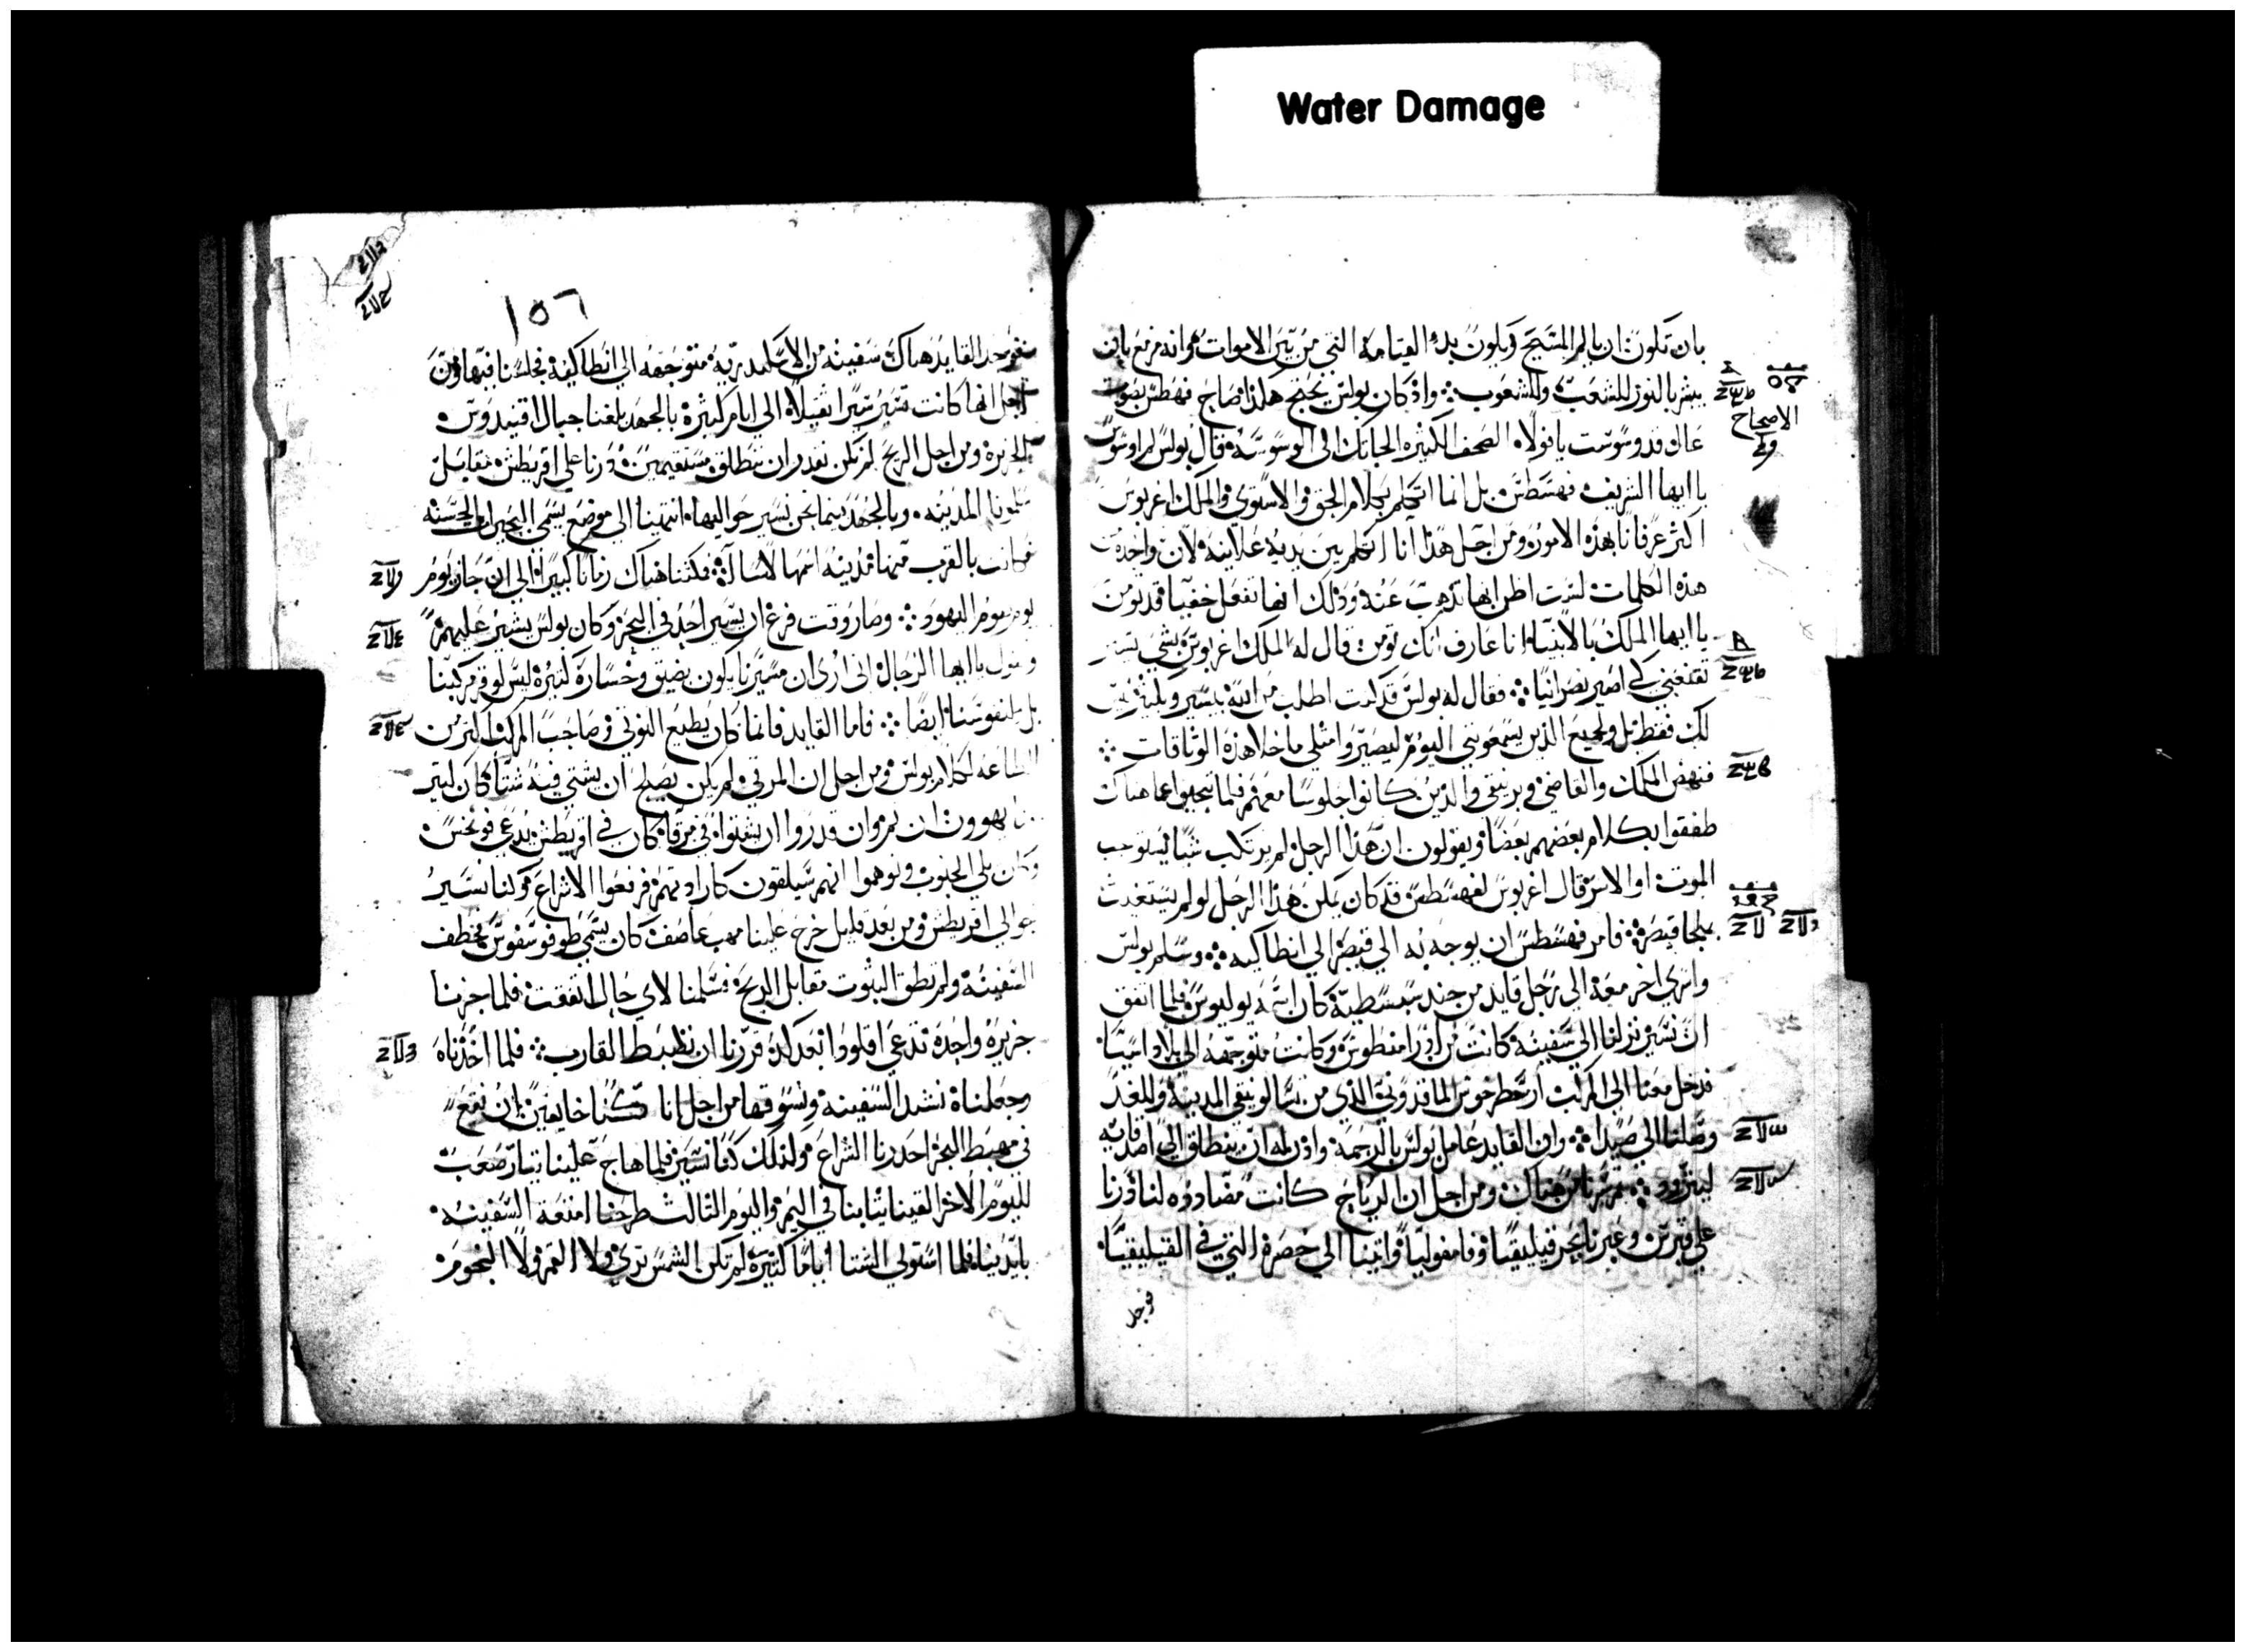 Water Damage
بان تكون ان يالم المسيح ويكون بدء القيامة التي من بين الاموات وانه مزمع بان
يبشر بالنور للشعب وللشعوب ܀ واذ كان بولس يحتج هكذا صاح فهسطس بصوت
عال قد وسوست يا فولا الصحف الكثيره الجاتك الى الوسوسة فقال بولس لم اوسوس
يا ايها الشريف فهسطس بل انما اتكلم بكلام الحق والاستوى والملك اغريوس
اكثر عرفانا بهذه الامور ومن اجل هذا انا اتكلم بين يديه علانية لان واحدة من
هذه الكلمات لست اظن انها تذهب عنه وذلك انها تفعل خفيا قد تومن
يا ايها الملك بالانبياء انا عارف انك تومن قال له الملك اغريوس بشي يسير
تقنعني كي اصير نصرانيا ܀ فقال له بولس قد كنت اطلب من الله بيسير وبكثير ليس
لك فقط بل ولجميع الذين يسمعونني اليوم ليصيروا مثلي ما خلا هذه الوثاقات ܀
فنهض الملك والقاضي وبرنيقي والذين كانوا جلوسا معهم فلما تنحيوا عما هناك
طفقوا يكلام بعضهم بعضا ويقولون ان هذا الرجل لم يرتكب شيا يستوجب
الموت او الاسر قال اغريوس لفهسطس قد كان يمكن هذا الرجل لو لم يستغيث
بملجا قيصر ܀ فامر فهسطس ان يوجه به الى قيصر الى انطاكيه ܀ وسلم بولس
واسرى اخر معه الى رجل قايد من جند سبسطية كان اسمه يوليوس فلما اتفق
ان نسير نزلنا الى سفينة كانت من ادرامنطوس وكانت متوجهه الى بلاد اسيا
فدخل معنا الى المركب ارسطرخوس الماقدوني الذي من تسالونيقي المدينة وللغد
وصلنا الى صيدا ܀ وان القايد عامل بولس بالرحمة واذن له ان ينطلق الى اصدقايه
ليتزود ܀ ثم سرنا من هناك ومن اجل ان الرياح كانت مضادده لنا درنا
على قبرس وعبرنا بحر قيليقيا وفامفوليا واتينا الى حضرة التي في القيليقيا
فوجد
الاصحاح
١٥٦
فوجد القايد هناك سفينة من الاسكندرية متوجهه الى انطاكية فجلسنا فيها ومن
اجل انها كانت تسير سيرا ثقيلا الى ايام كثيرة بالجهد بلغنا حيال اقنيدوس
الجزيرة ومن اجل الريح لم نكن نقدر ان ننطلق مستقيمين درنا على اقريطش مقابل
سلمونا المدينه وبالجهد بينما نحن نسير حواليها انتهينا الى موضع يسمى البحيرات الحسنه
وكانت بالقرب منها مدينة اسمها لاسالا ܀ فمكثنا هناك زمانا كبيرا الى ان جاز يوم
صوم اليهود ܀ وصار وقت فزع ان يسير احد في البحر وكان بولس يشير عليهم
ويقول يا ايها الرجال انى ارى ان مسيرنا يكون بضيق وخسارة كثيرة ليس لوقر مركبنا
بل لنفوسنا ايضا ܀ فاما القايد فانما كان يطيع النوتي وصاحب المركب اكثر من
الطاعه لكلام بولس ومن اجل ان المرتي لم يكن يصلح ان يشتى فيه شتا كان كثير
يهوون ان يمروا ان قدروا ان يشتوا في مرقاة كان في اقريطش يدعى فونخس
وكان يلي الجنوب وتوهموا انهم سيلقون كارادتهم فرفعوا الشراع وكنا نسير
حوالي اقريطش ومن بعد قليل خرج علينا مهب عاصف كان يسمى طوفوسفوس فخطف
السفينة ولم تطق الثبوت مقابل الريح فسلمنا لاي حال اتفقت فلما جزنا
جزيرة واحدة تدعى اقلودا بعد كد قدرنا ان نضبط القارب ܀ فلما اخذناه
وجعلناه نشد السفينه ونسوقها من اجل انا كنا خايفين ان نقع
في مهبط البحر احدرنا الشراع ولذلك كنا نسير فلما هاج علينا تيار صعب
لليوم الاخر القينا ثيابنا في اليم واليوم الثالث طرحنا امتعة السفينه
بايدينا فلما استولى الشتا اياما كثيرة لم تكن الشمس ترى ولا القمر ولا النجوم